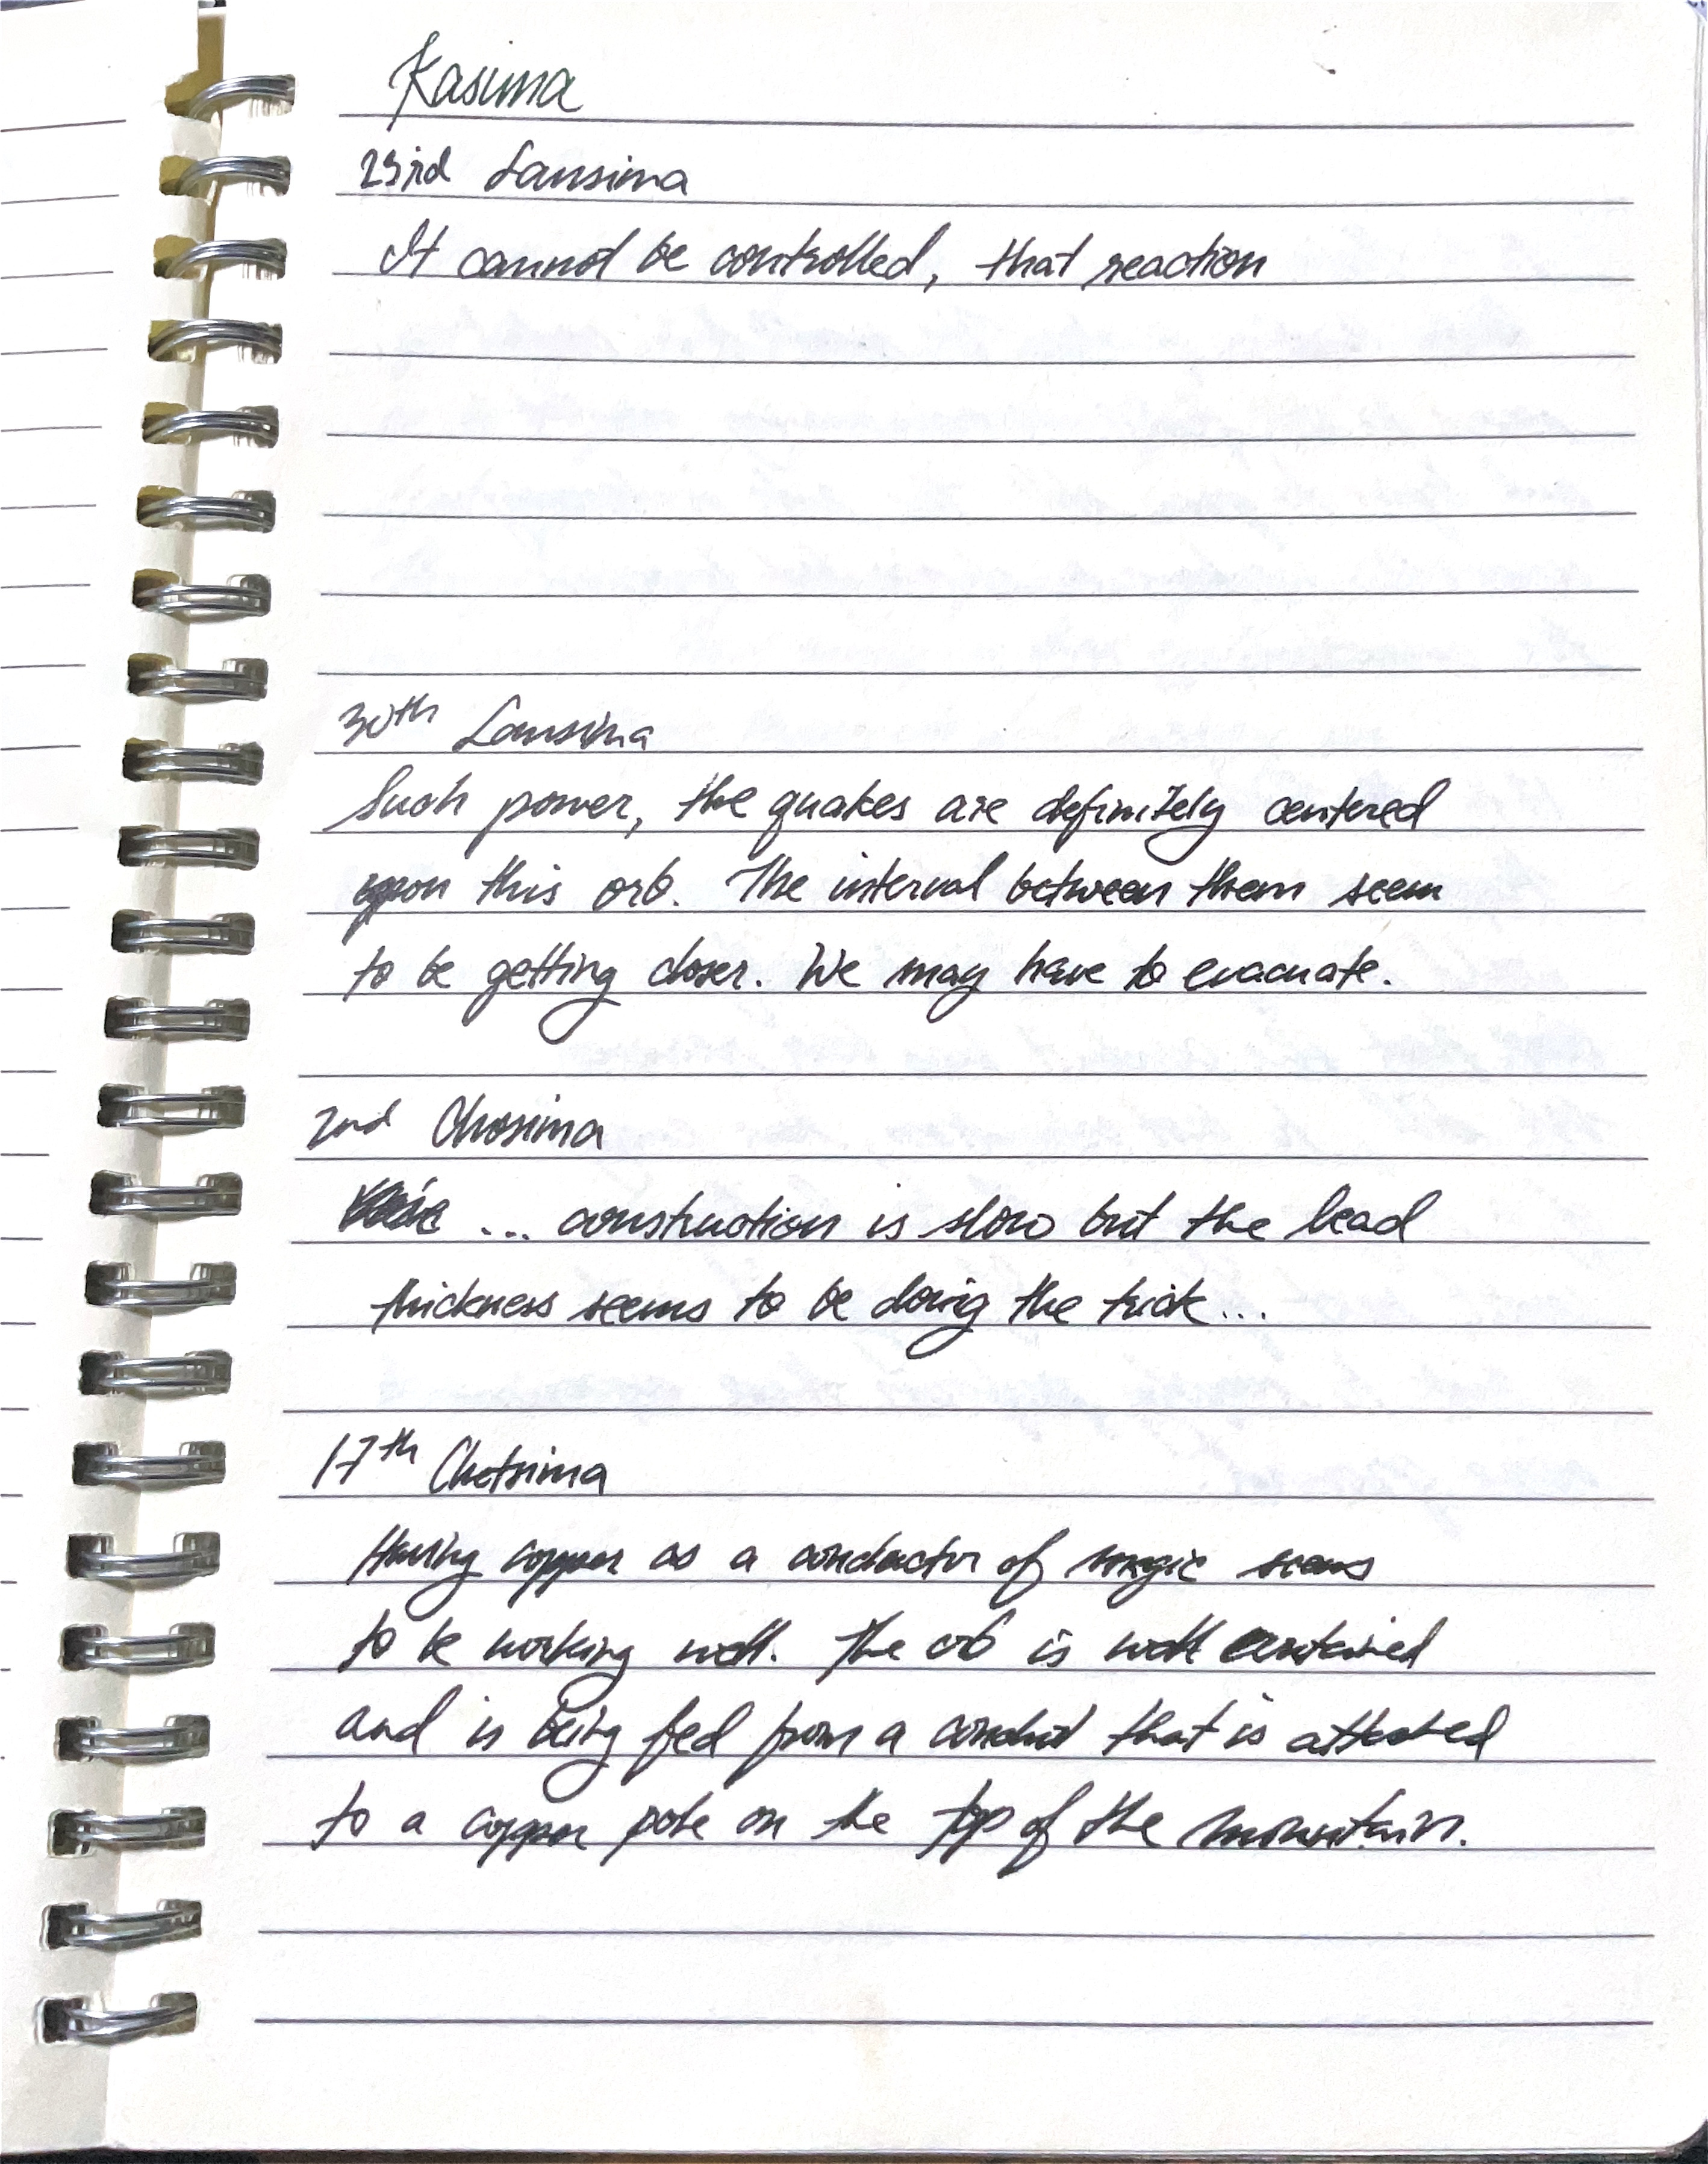 Kasima
23rd Lansima
It cannot be controlled, that reaction
30th Lansima
Such power, the quakes are definitely centered
upon this orb. The interval between them seem
to be getting closer. We may have to evacuate.
2nd Chosima
... construction is slow but the lead
thickness seems to be doing the trick...
17th Chetsima
Having copper as a conductor of magic seems
to be working well. The orb is well contained
and is being fed from a conduit that is attached
to a copper pole on the top of the mountain.